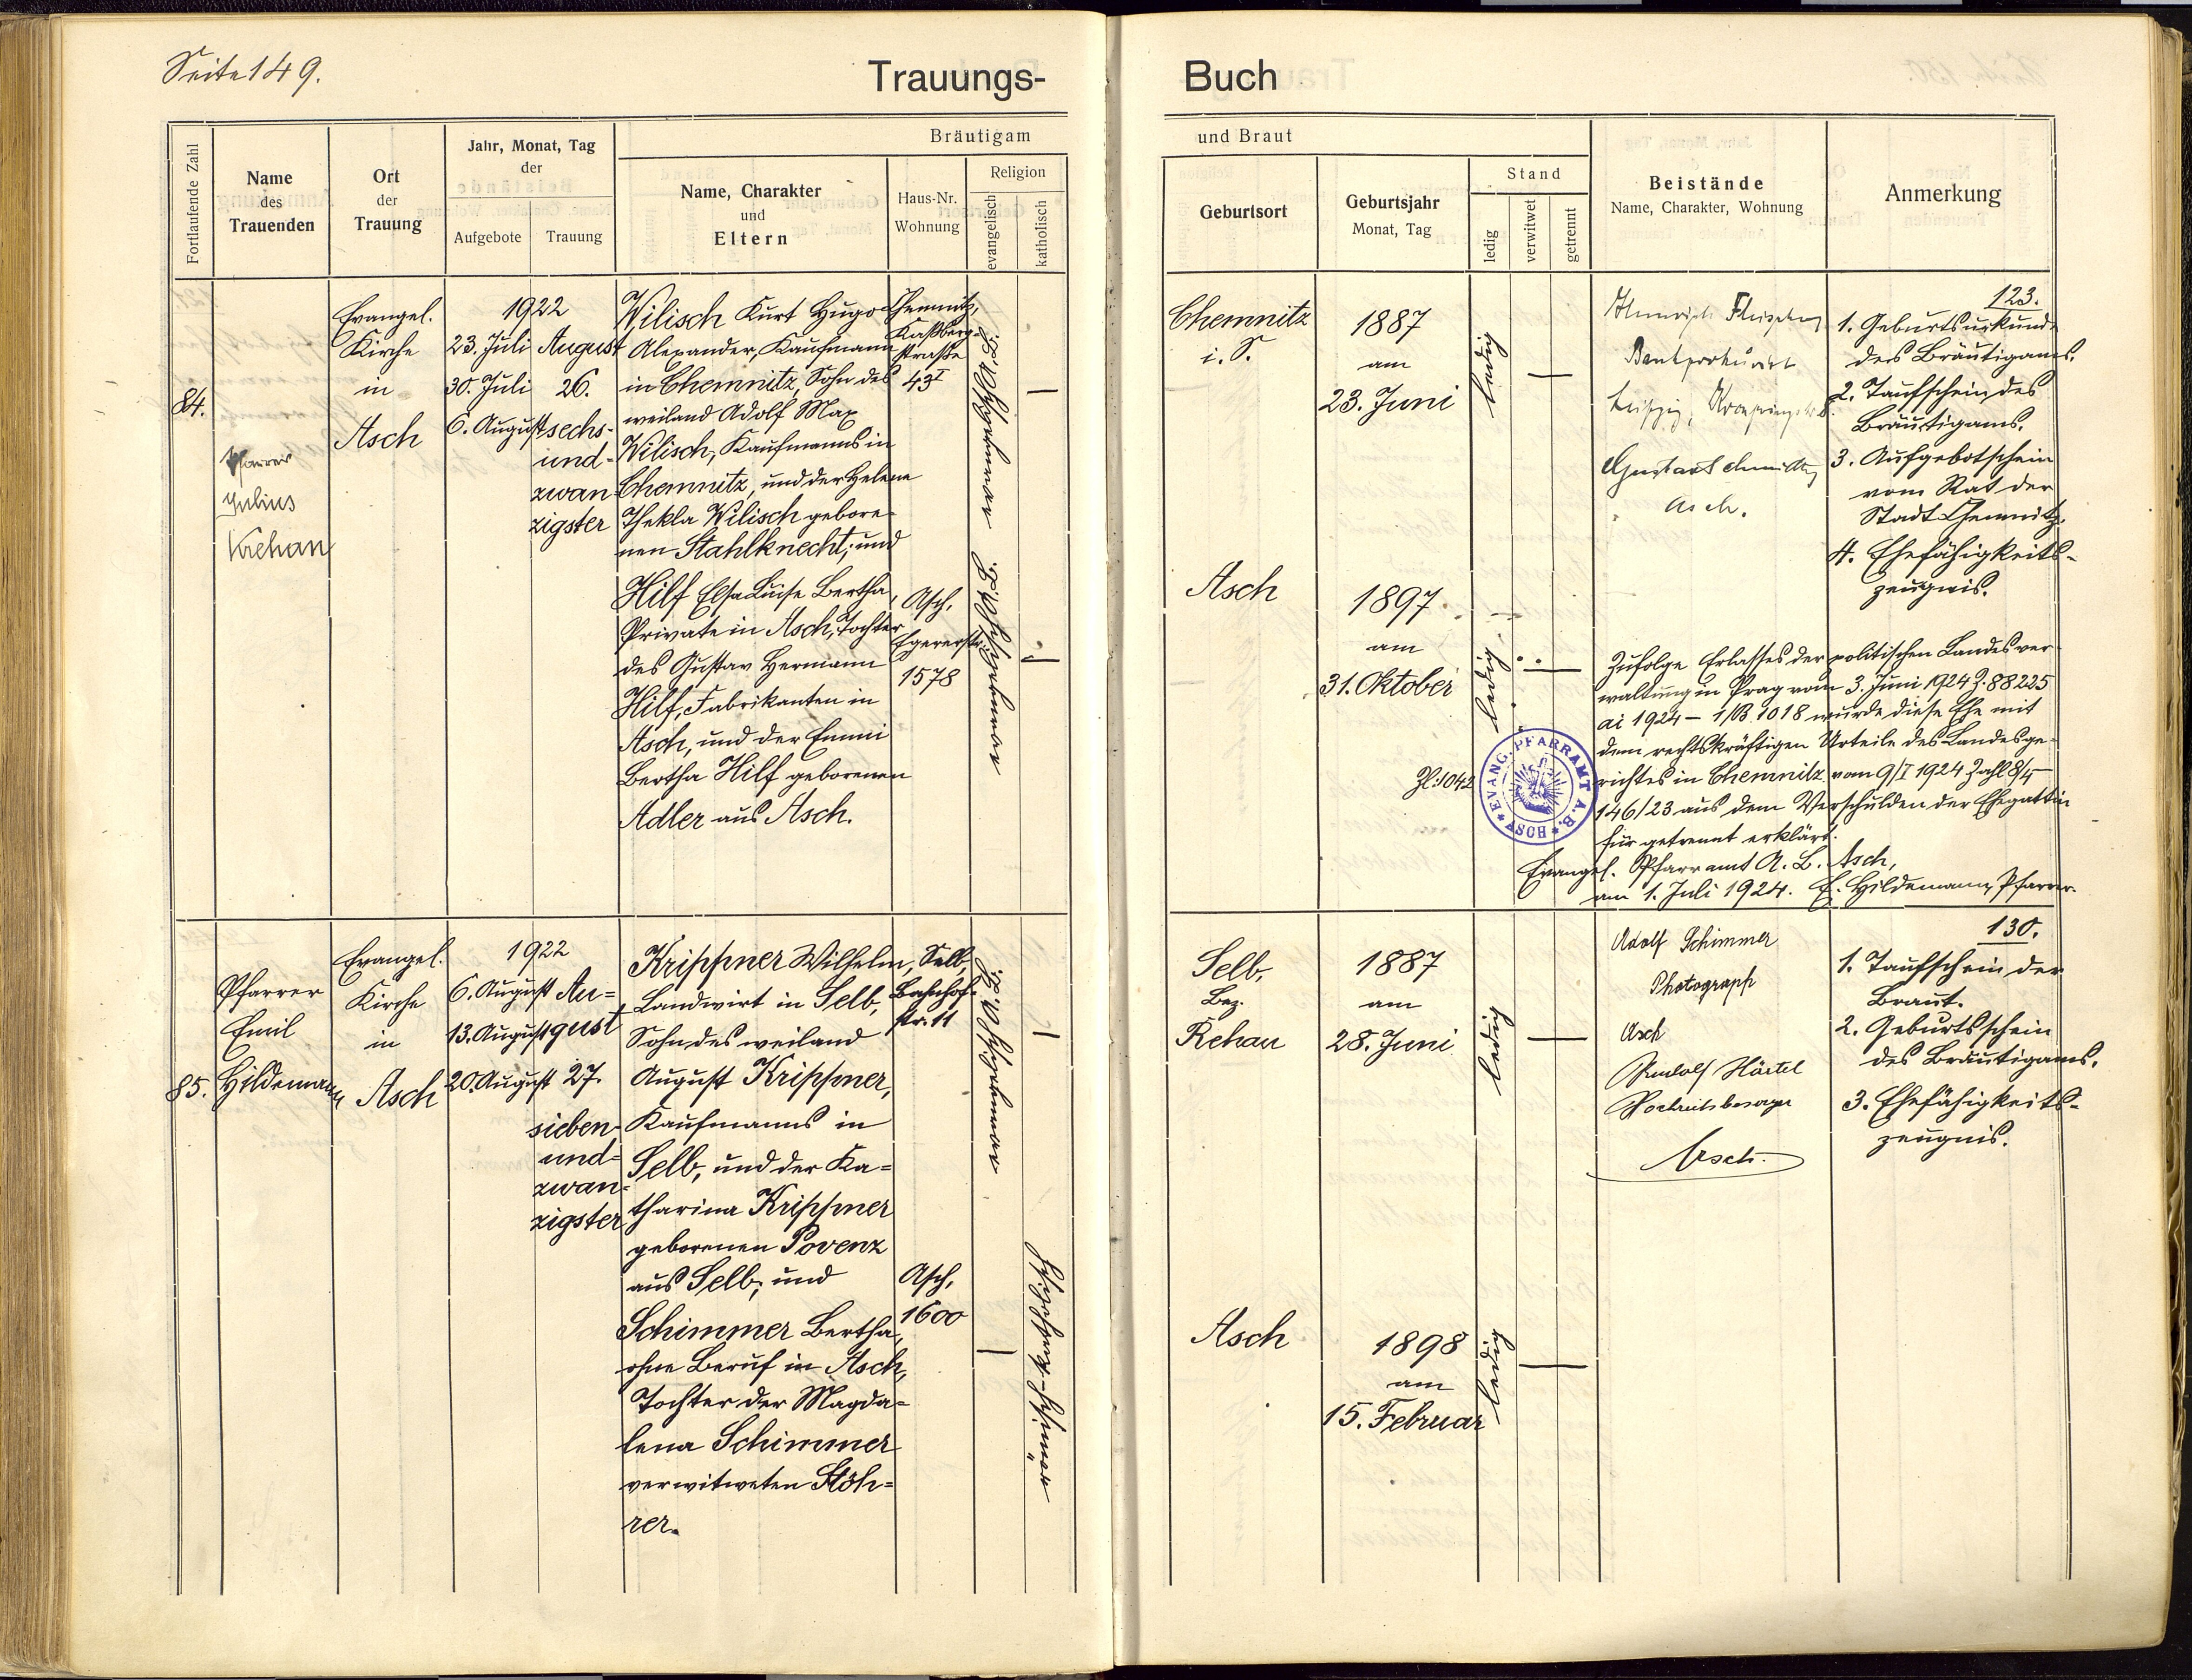 Seite 149.
Trauungs-
Buch
Fortlaufende Zahl
Name
des
Trauenden
Ort
der
Trauung
Jahr, Monat, Tag
der
Aufgebote
Trauung
Bräutigam
Name, Charakter
und
Eltern
Haus-Nr.
Wohnung
Religion
evangelisch
katholisch
und Braut
Geburtsort
Geburtsjahr
Monat, Tag
Stand
ledig
verwitwet
getrennt
Beistände
Name, Charakter, Wohnung
Anmerkung
84.
Pfarrer
Julius
Krehan
Evangel.
Kirche
in
Asch
1922
23. Juli
30. Juli
6. August
August
26.
sechs-
und-
zwan-
zigster
Wilisch Kurt Hugo
Alexander, Kaufmann
in Chemnitz, Sohn des
weiland Adolf Max
Wilisch, Kaufmanns in
Chemnitz, und der Helene
Thekla Wilisch gebore-
nen Stahlknecht; und
Hilf Elsa Luise Bertha,
Private in Asch, Tochter
des Gustav Hermann
Hilf, Fabrikanten in
Asch, und der Emmi
Bertha Hilf geborenen
Adler aus Asch.
Chemnitz,
Kaßberg-
straße
43 I
Asch,
Egererstr.
1578
Chemnitz
i. S.
1887
am
23. Juni
ledig
Asch
1897
am
31. Oktober
ledig
Leipzig,
Gustav
Asch.
123.
1. Geburtsurkunde
des Bräutigams.
2. Taufschein des
Bräutigams.
3. Aufgebotschein
vom Rat der
Stadt Chemnitz.
4. Ehefähigkeits-
zeugnis.
Zufolge Erlasses der politischen Landesver-
waltung in Prag vom 3. Juni 1924 Z. 88225
ai 1924 – 1/B 1018 wurde diese Ehe mit
dem rechtskräftigen Urteile des Landesge-
richtes in Chemnitz vom 9/I 1924 Zahl 8/4
146/23 aus dem Verschulden der Ehegattin
für getrennt erklärt.
Evangel. Pfarramt A. B. Asch,
am 1. Juli 1924. E. Hildemann, Pfarrer.
Zl. 1042
EVANG. PFARRAMT A.B.
ASCH
85.
Pfarrer
Emil
Hildemann
Evangel.
Kirche
in
Asch
1922
6. August
13. August
20. August
Au-
gust
27.
sieben-
und-
zwan-
zigster
Krippner Wilhelm,
Landwirt in Selb,
Sohn des weiland
August Krippner,
Kaufmanns in
Selb, und der Ka-
tharina Krippner
geborenen Povenz
aus Selb; und
Schimmer Bertha,
ohne Beruf in Asch,
Tochter der Magda-
lena Schimmer
verwitweten Stöh-
rer.
Selb,
Bahnhof-
str. 11
Asch,
1600
römisch-katholisch
Selb,
Bez.
Rehau
1887
am
28. Juni
ledig
Asch
1898
am
15. Februar
ledig
Adolf Schimmer
Photograph
Asch
Rudolf Härtel
Asch.
130.
1. Taufschein der
Braut.
2. Geburtsschein
des Bräutigams.
3. Ehefähigkeits-
zeugnis.